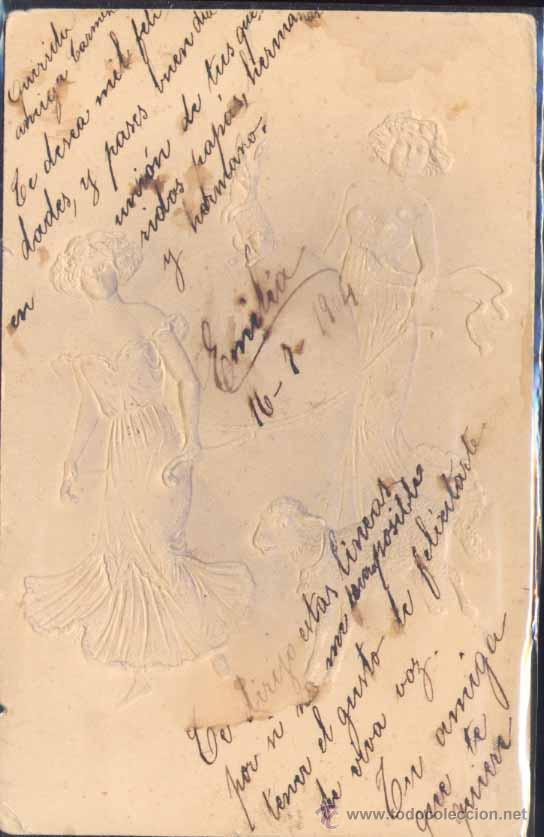 Querida
amiga Carmen
Te desea mil feli
dades, y pases buen dia
en unión de tus que
ridos papás, hermana
y hermano.
Emilia
16-7-1914
Te dirijo estas lineas
por n no me imposible
tener el gusto de felicitarte
de viva voz.
Tu amiga
que te
quiere
todocoleccion
www.todocoleccion.net